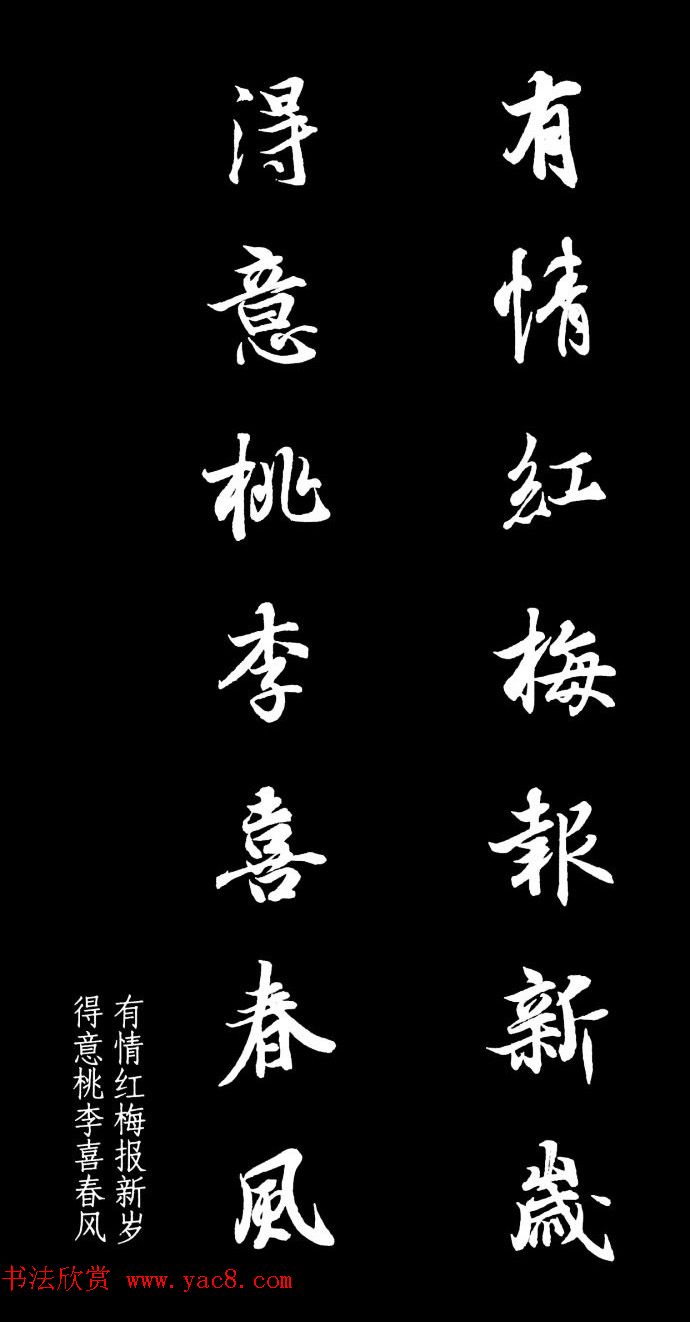 有情紅梅報新歲
得意桃李喜春風
有情红梅报新岁
得意桃李喜春风
书法欣赏 www.yac8.com